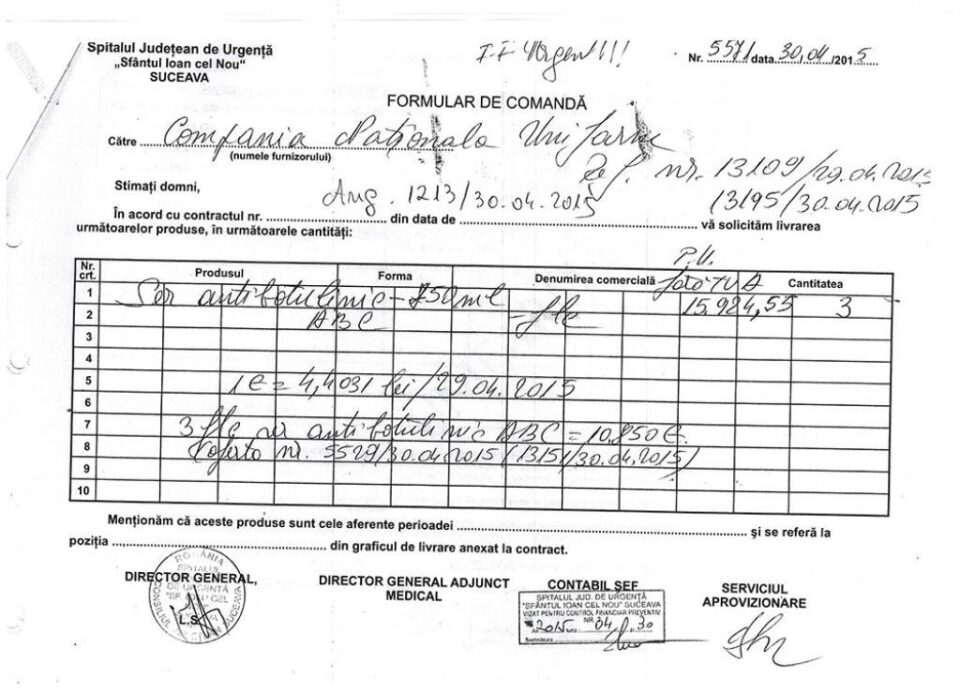 Spitalul Județean de Urgență
„Sfântul Ioan cel Nou"
SUCEAVA
F. F. Urgent!!!
Nr. 5571 data 30.04/2015
FORMULAR DE COMANDĂ
Către Compania Națională Unifarm
(numele furnizorului)
Ref. nr. 13109/29.04.2015
13195/30.04.2015
Stimați domni,
Ang. 1213/30.04.2015
În acord cu contractul nr. din data de vă solicităm livrarea
următoarelor produse, în următoarele cantități:
P.U.
Nr. crt. Produsul Forma Denumirea comercială fără TVA Cantitatea
1 Ser antibotulinic - 250 ml 15.924,55 3
2 ABC - fle
3
4
5 1 € = 4,4031 lei/29.04.2015
6
7 3 fle antibotulinic ABC = 10.850 €.
8 oferta nr. 5529/30.04.2015 (13151/30.04.2015)
9
10
Menționăm că aceste produse sunt cele aferente perioadei și se referă la
poziția din graficul de livrare anexat la contract.
DIRECTOR GENERAL,
L.S.
DIRECTOR GENERAL ADJUNCT
MEDICAL
CONTABIL ȘEF
SPITALUL JUD. DE URGENȚĂ
"SFÂNTUL IOAN CEL NOU" SUCEAVA
VIZAT PENTRU CONTROL FINANCIAR PREVENTIV
NR.
2015 04 30
SERVICIUL
APROVIZIONARE